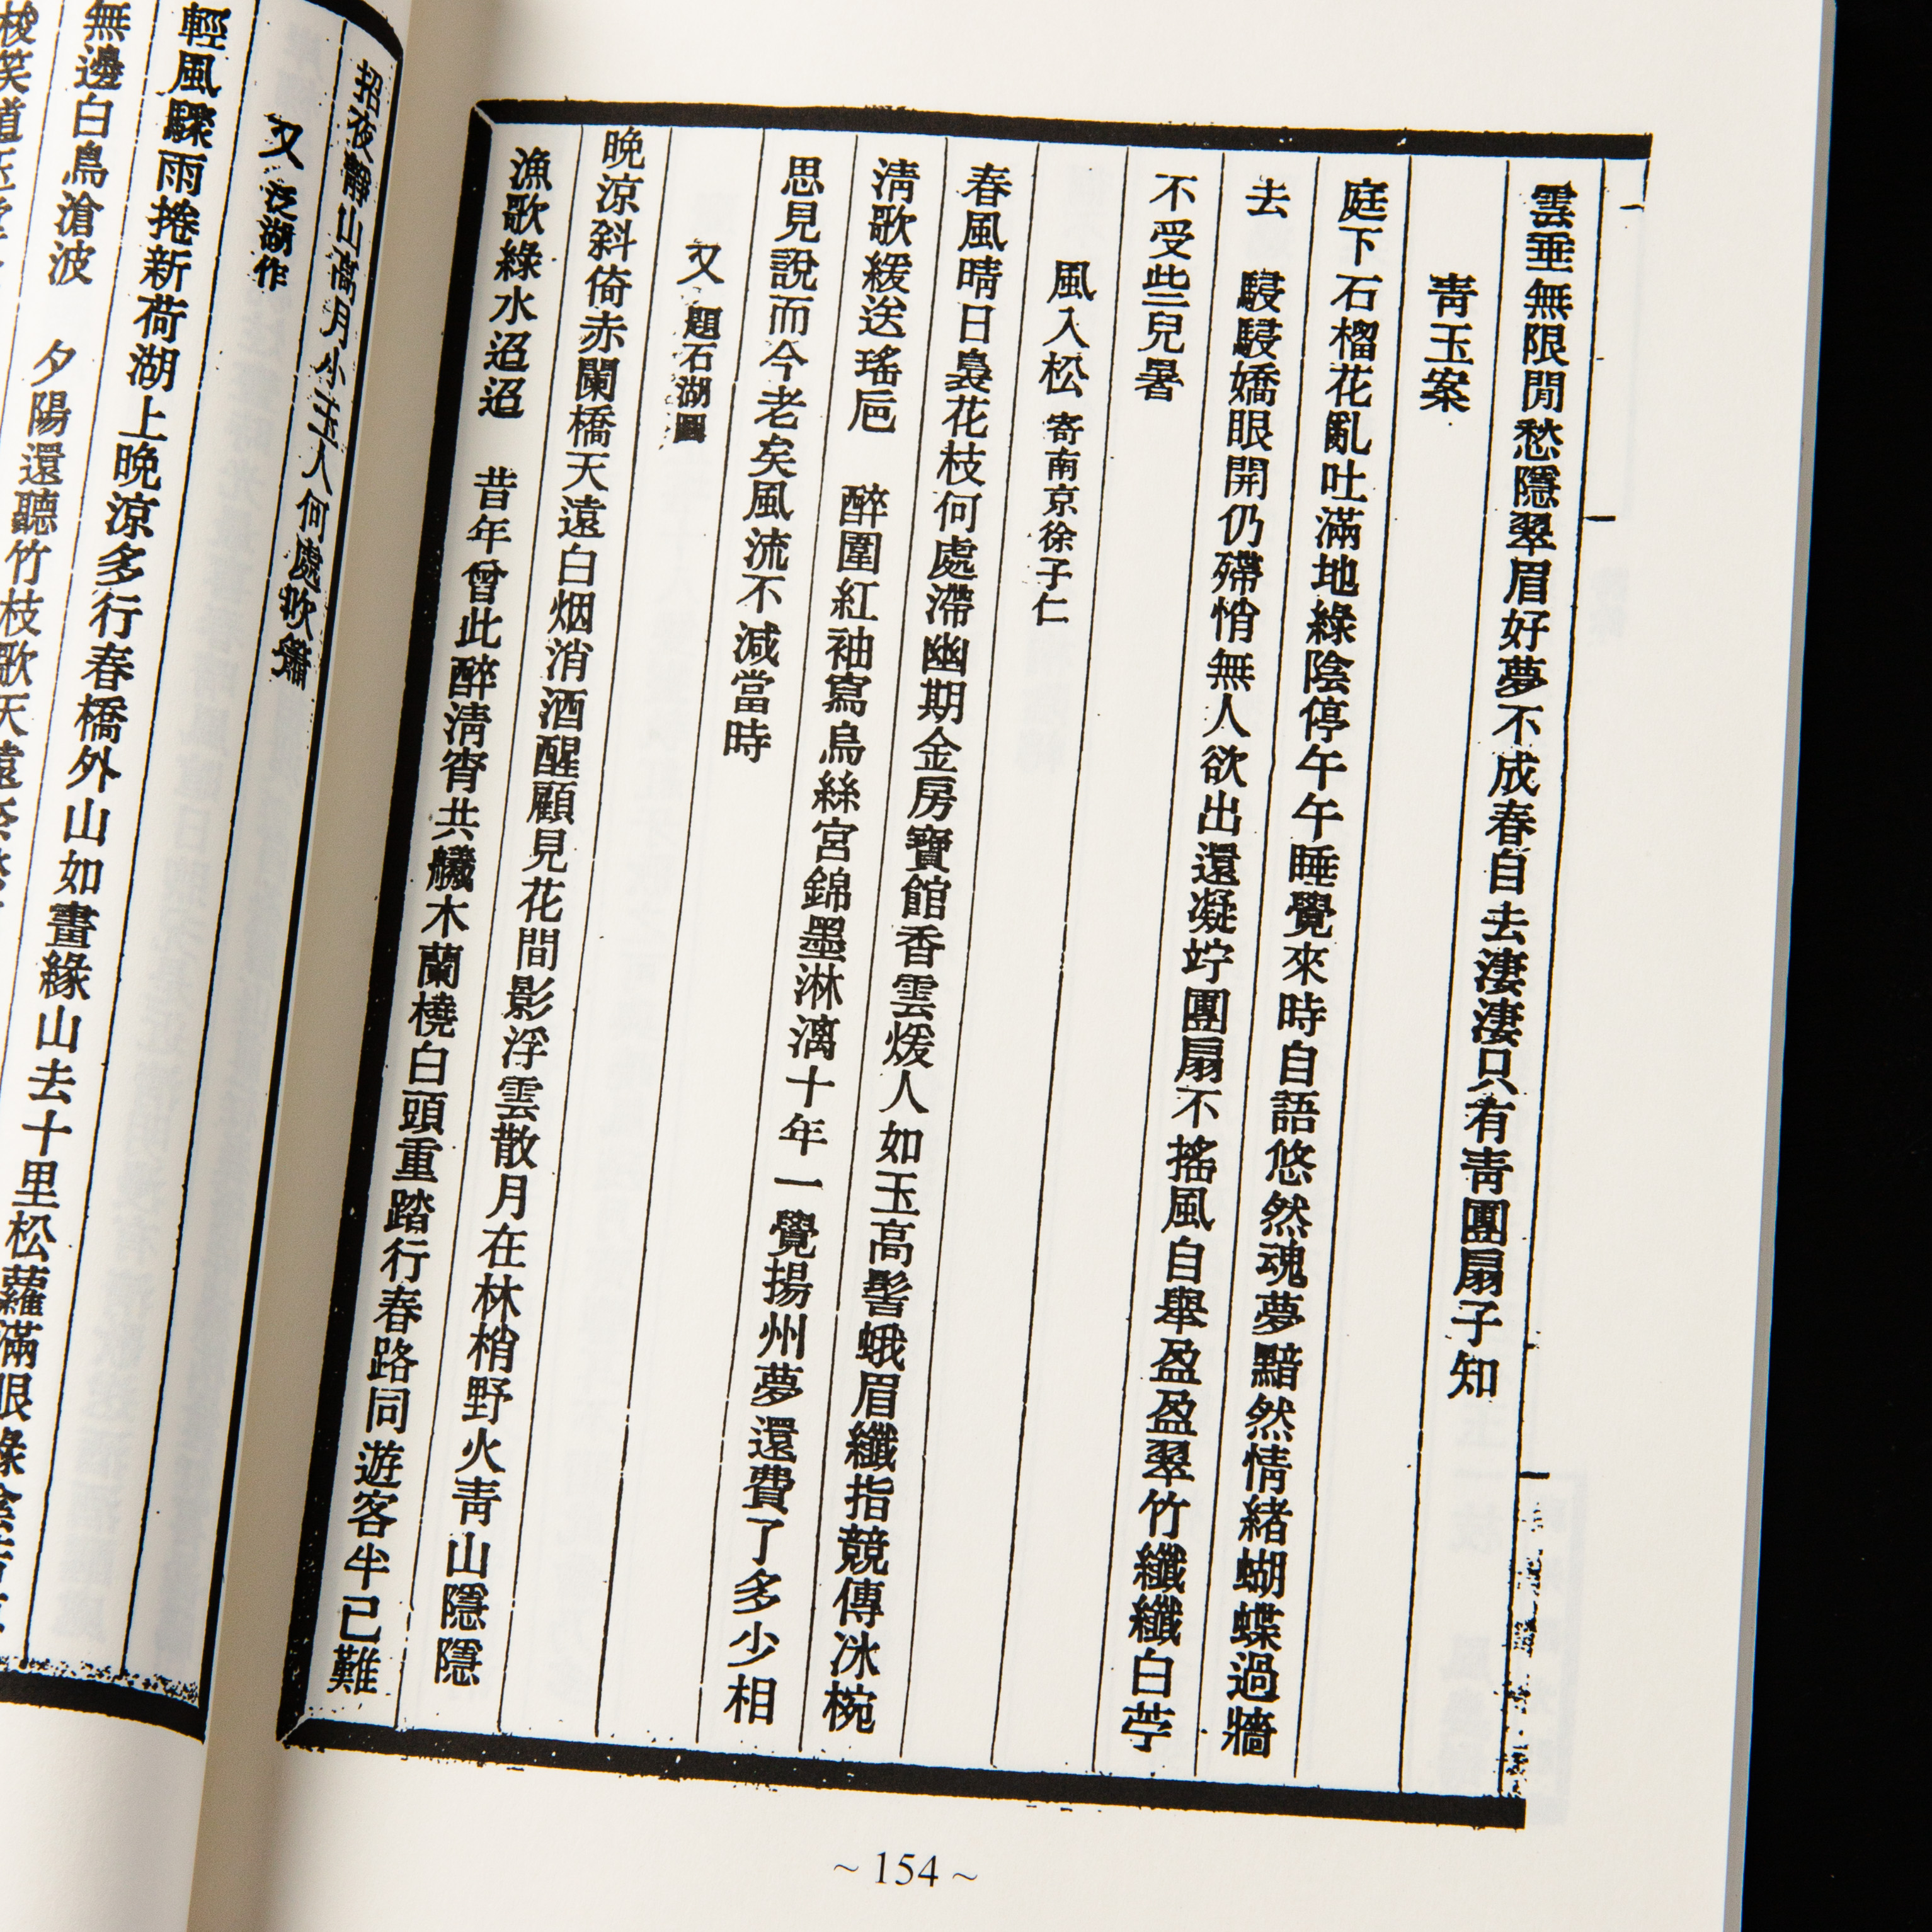 雲垂無限閒愁隱翠眉好夢不成春自去淒淒只有靑團扇子知
靑玉案
庭下石榴花亂吐滿地綠陰停午午睡覺來時自語悠然魂夢黯然情緒蝴蝶過牆
去　駸駸嬌眼開仍殢悄無人欲出還凝竚團扇不搖風自舉盈盈翠竹纖纖白苧
不受些兒暑
風入松 寄南京徐子仁
春風晴日裊花枝何處滯幽期金房寶館香雲煖人如玉高髻蛾眉纖指競傳冰椀
淸歌緩送瑤巵　醉圍紅袖寫烏絲宮錦墨淋漓十年一覺揚州夢還費了多少相
思見說而今老矣風流不减當時
又 題石湖圖
晚涼斜倚赤闌橋天遠白烟消酒醒顧見花間影浮雲散月在林梢野火靑山隱隱
漁歌綠水迢迢　昔年曾此醉淸宵共艤木蘭橈白頭重踏行春路同遊客半已難
招夜靜山高月小玉人何處吹簫
又 泛湖作
輕風驟雨捲新荷湖上晚涼多行春橋外山如畫緣山去十里松蘿滿眼綠陰
無邊白鳥滄波　夕陽還聽竹枝歌天遠
~ 154 ~